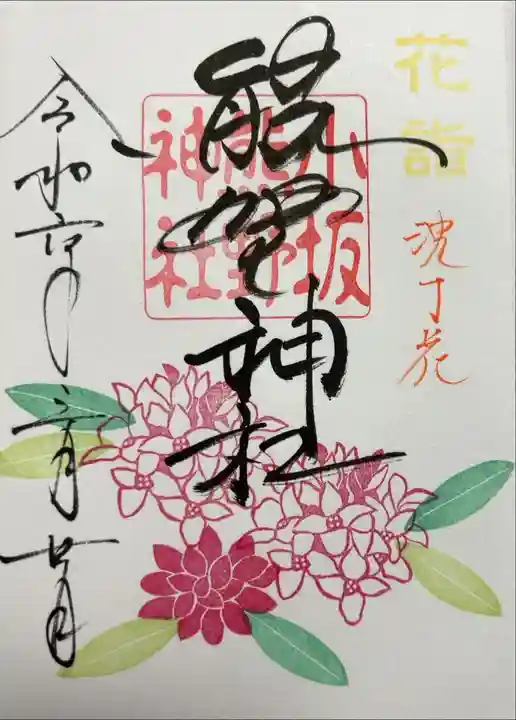 花詣
沈丁花
熊野神社
小坂
熊野
神社
令和六年三月廿日